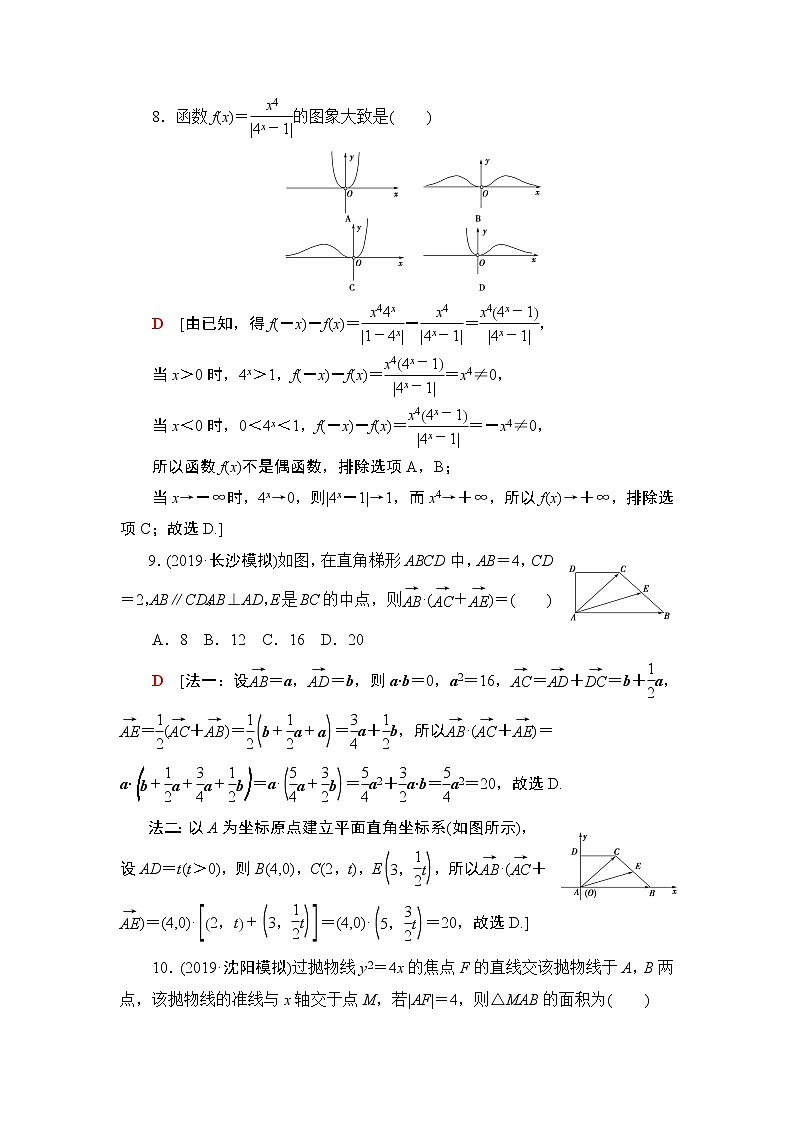 8．函数 f(x)＝x⁴/|4ˣ－1|的图象大致是(　　)
y
O
x
A
y
O
x
B
y
O
x
C
y
O
x
D
D　[由已知，得 f(－x)－f(x)＝x⁴4ˣ/|1－4ˣ|－x⁴/|4ˣ－1|＝x⁴(4ˣ－1)/|4ˣ－1|，
当 x＞0 时，4ˣ＞1，f(－x)－f(x)＝x⁴(4ˣ－1)/|4ˣ－1|＝x⁴≠0，
当 x＜0 时，0＜4ˣ＜1，f(－x)－f(x)＝x⁴(4ˣ－1)/|4ˣ－1|＝－x⁴≠0，
所以函数 f(x)不是偶函数，排除选项 A，B；
当 x→－∞时，4ˣ→0，则|4ˣ－1|→1，而 x⁴→＋∞，所以 f(x)→＋∞，排除选
项 C；故选 D.]
9．(2019·长沙模拟)如图，在直角梯形 ABCD 中，AB＝4，CD
＝2，AB∥CD，AB⊥AD，E 是 BC 的中点，则AB→·(AC→＋AE→)＝(　　)
D
C
E
A
B
A．8　B．12　C．16　D．20
D　[法一：设AB→＝a，AD→＝b，则 a·b＝0，a²＝16，AC→＝AD→＋DC→＝b＋1/2a，
AE→＝1/2(AC→＋AB→)＝1/2(b＋1/2a＋a)＝3/4a＋1/2b，所以AB→·(AC→＋AE→)＝
a·(b＋1/2a＋3/4a＋1/2b)＝a·(5/4a＋3/2b)＝5/4a²＋3/2a·b＝5/4a²＝20，故选 D.
法二：以 A 为坐标原点建立平面直角坐标系(如图所示)，
设 AD＝t(t＞0)，则 B(4,0)，C(2，t)，E(3，1/2t)，所以AB→·(AC→＋
AE→)＝(4,0)·[(2，t)＋(3，1/2t)]＝(4,0)·(5，3/2t)＝20，故选 D.]
y
D
C
E
A
(O)
B
x
10．(2019·沈阳模拟)过抛物线 y²＝4x 的焦点 F 的直线交该抛物线于 A，B 两
点，该抛物线的准线与 x 轴交于点 M，若|AF|＝4，则△MAB 的面积为(　　)